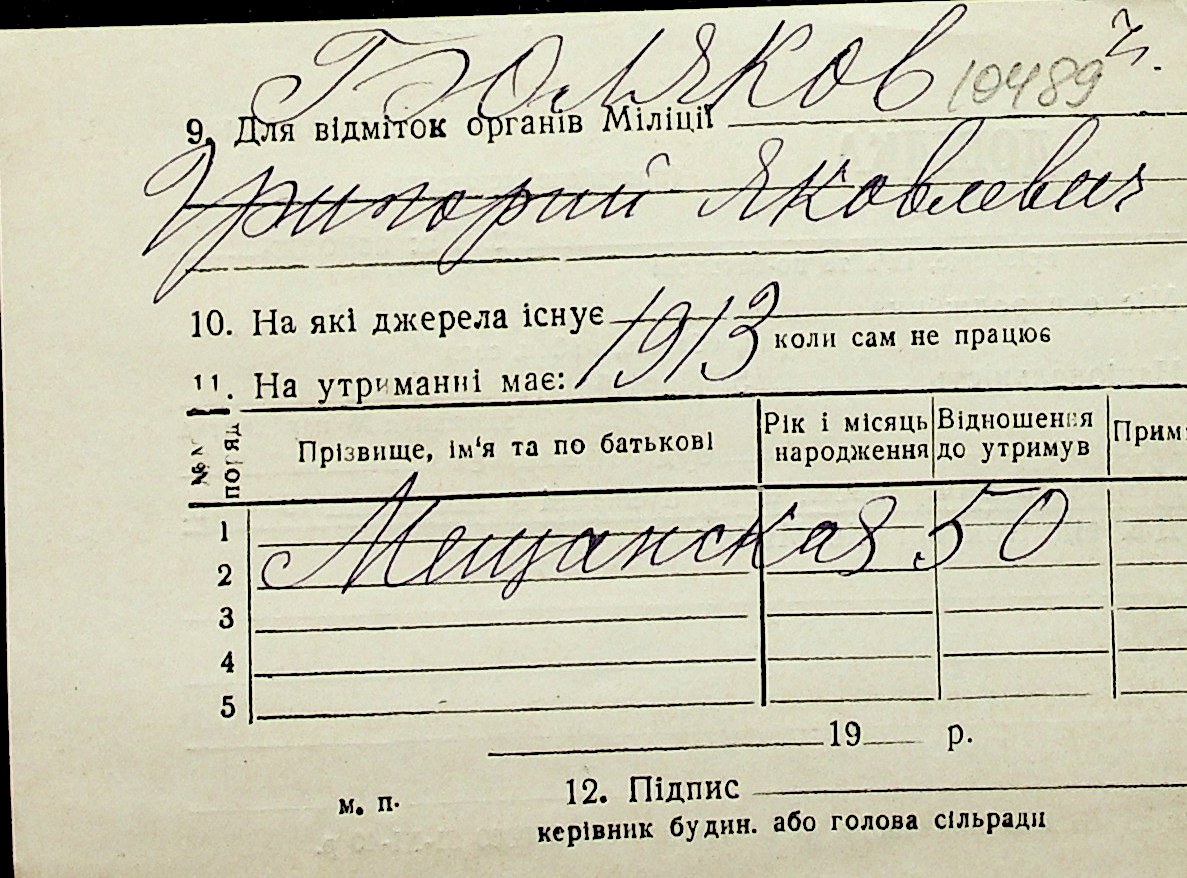 Поляков 10489
9. Для відміток органів Міліції
Григорий Яковлевич
10. На які джерела існує
1913 коли сам не працює
11. На утриманні має:
№№ поряд Прізвище, ім'я та по батькові Рік і місяць народження Відношення до утримув Прим
1
Мещанская 50
2
3
4
5
19 р.
м. п. 12. Підпис
керівник будин. або голова сільради